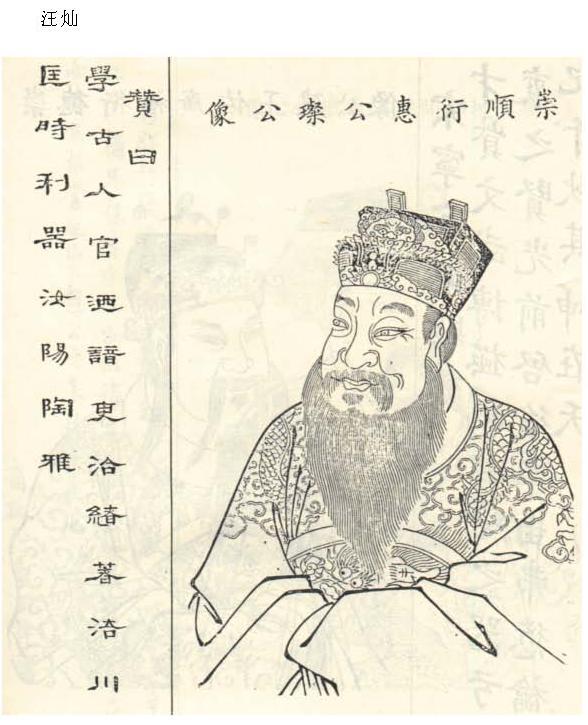 汪灿
崇順衍惠公璨公像
贊曰
學古人官迺諳吏治績著浯川
匡時利器汝陽陶雅